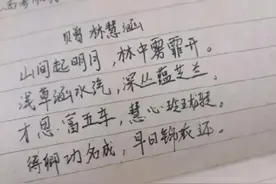 赠林慧涵
山间起明月，林中雾霏开。
浅草涵水汽，深丛蕴芝兰，
才思富五车，慧心
待卿功名成，早日锦衣还。